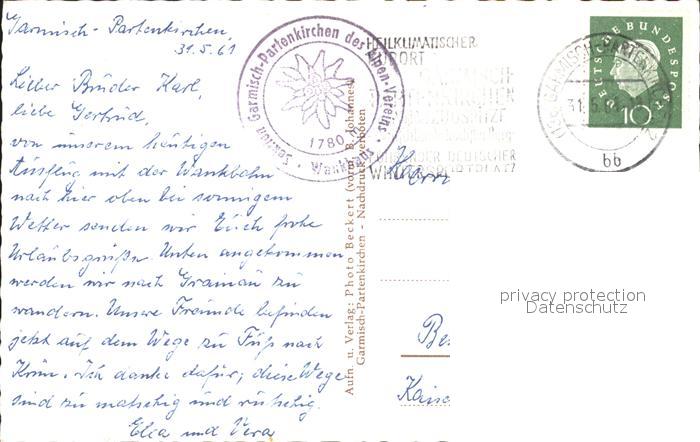 Garmisch-Partenkirchen,
31.5.61
Lieber Bruder Karl,
liebe Gertrud,
von unserem heutigen
Ausflug mit der Wankbahn
nach hier oben bei sonnigem
Wetter senden wir Euch frohe
Urlaubsgrüße. Unten angekommen
werden wir nach Grainau zu
wandern. Unsere Freunde befinden
jetzt auf dem Wege zu Fuß nach
Krün. Ich danke dafür; diese Wege
sind zu matschig und rutschig.
und Vera
Sektion Garmisch-Partenkirchen des Alpen-Vereins
1780 m
Wankhaus
HEILKLIMATISCHER
KURORT
GARMISCH-
PARTENKIRCHEN
DER DEUTSCHER
WINTERSPORTPLATZ
GARMISCH-PARTENKIRCHEN 2
31.5.61
bb
DEUTSCHE BUNDESPOST
10
Aufn. u. Verlag: Photo Beckert (vorm. B. Johannes)
Garmisch-Partenkirchen - Nachdruck verboten
Herrn
Be
Kaise
privacy protection
Datenschutz